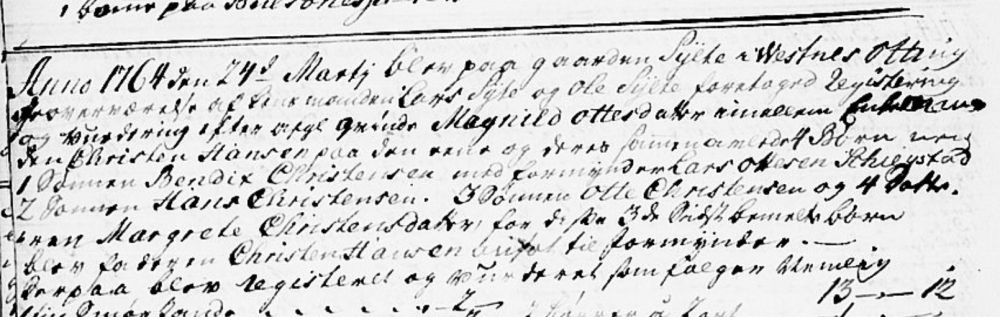 1
Anno 1764 den 24d Martj blev paa gaarden Sylte i Westnes Otting
overværelse af Lars Sylte og Ole Sylte foretaged Registering
og Vurdering efter afg: Qvinde Magnild Ottesdatter imellem Enkemanden
den Christen Hansen paa den eene og deres sammenavlede 4 Børn nem
1 Sønnen Bendix Christensen med formynder Lars Ottesen
2 Sønnen Hans Christensen. 3 Sønnen Otte Christensen og 4 Datte.
ren Margrete Christensdatter, for disse 3de Sidstbemelte børn
blev faderen Christen Hansen til formynder. —
Derpaa blev registeret og Vurderet som følger Nemlig
13 — 12
2